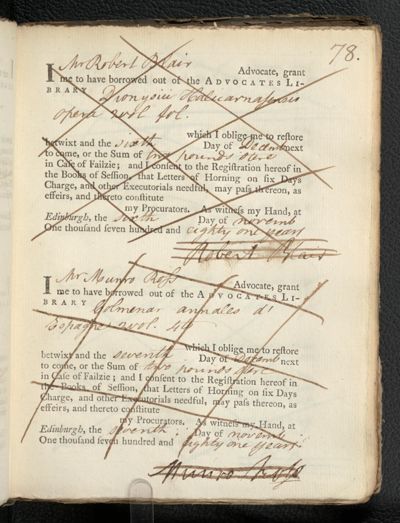 78.
I Mr Robert Blair Advocate, grant
me to have borrowed out of the ADVOCATES LI-
BRARY Dionysii Halicarnassensis
opera 2 vol. fol.
which I oblige me to reſtore
betwixt and the sixth Day of Decemr next
to come, or the Sum of two pounds ster
in Caſe of Failzie; and I conſent to the Regiſtration hereof in
the Books of Seſſion, that Letters of Horning on ſix Days
Charge, and other Executorials needful, may paſs thereon, as
effeirs, and thereto conſtitute
my Procurators. As witneſs my Hand, at
Edinburgh, the sixth Day of novemb
One thouſand ſeven hundred and eighty one years
Robert Blair
I Mr Munro Ross Advocate, grant
me to have borrowed out of the ADVOCATES LI-
BRARY Colmenar annales d'
Espagne 2 vol. 4o
which I oblige me to reſtore
betwixt and the seventh Day of Decemr next
to come, or the Sum of two pounds ster
in Caſe of Failzie; and I conſent to the Regiſtration hereof in
the Books of Seſſion, that Letters of Horning on ſix Days
Charge, and other Executorials needful, may paſs thereon, as
effeirs, and thereto conſtitute
my Procurators. As witneſs my Hand, at
Edinburgh, the seventh Day of novemb
One thouſand ſeven hundred and eighty one years
Munro Ross